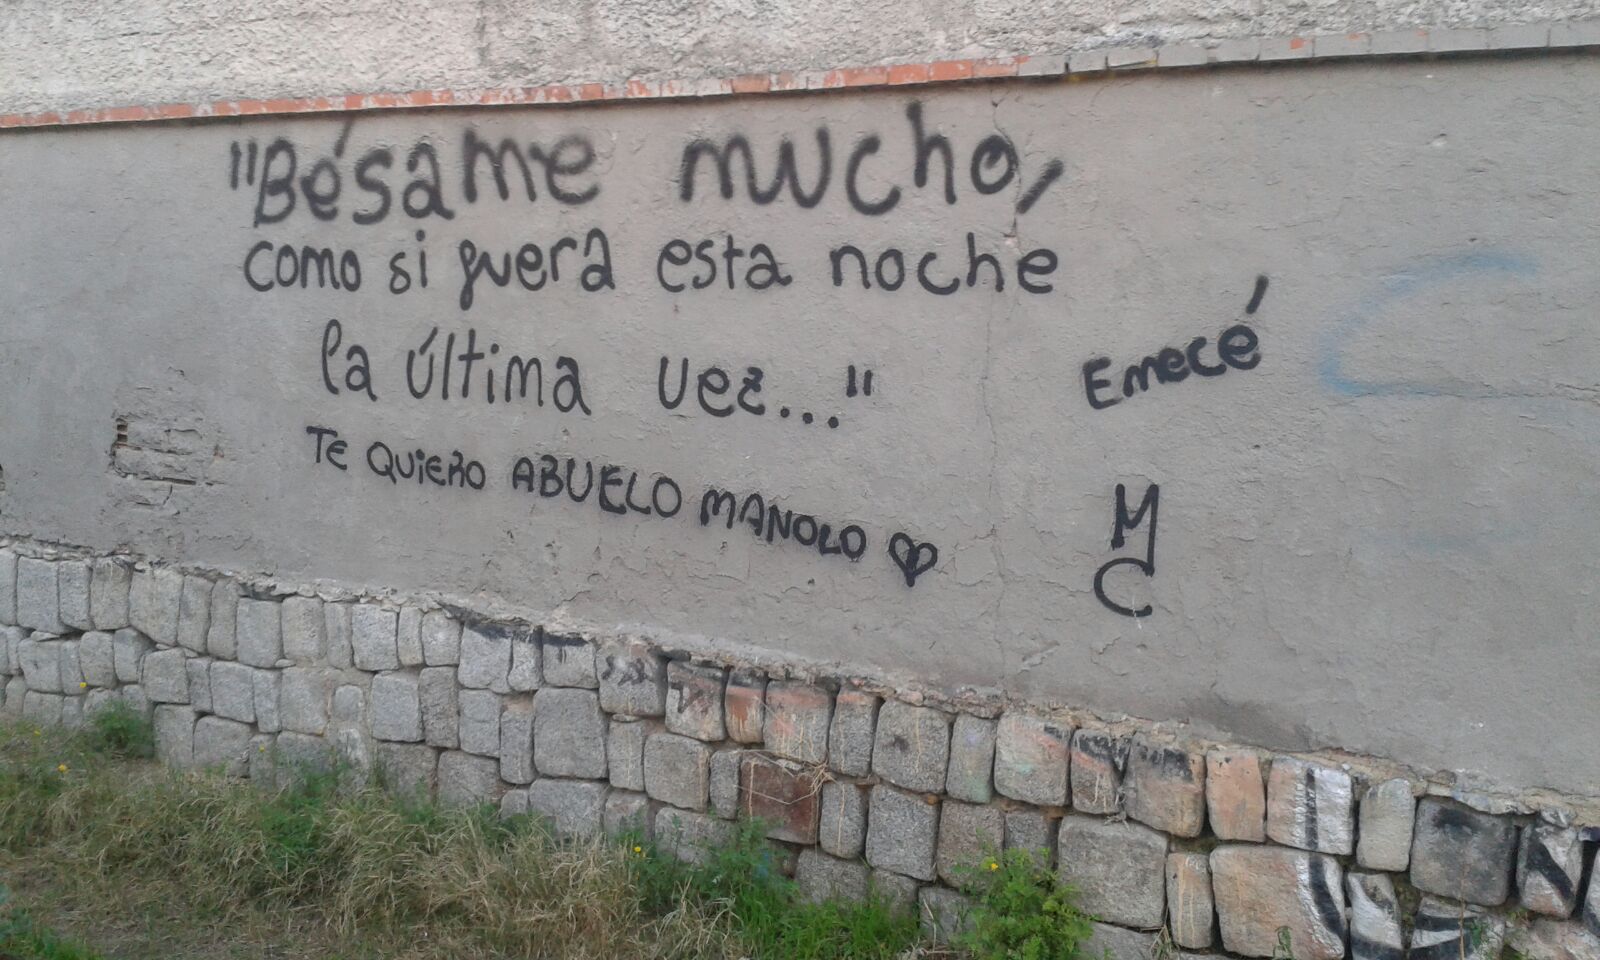 "Bésame mucho,
como si fuera esta noche
la última vez..."
TE QUIERO ABUELO MANOLO
Emecé
MC